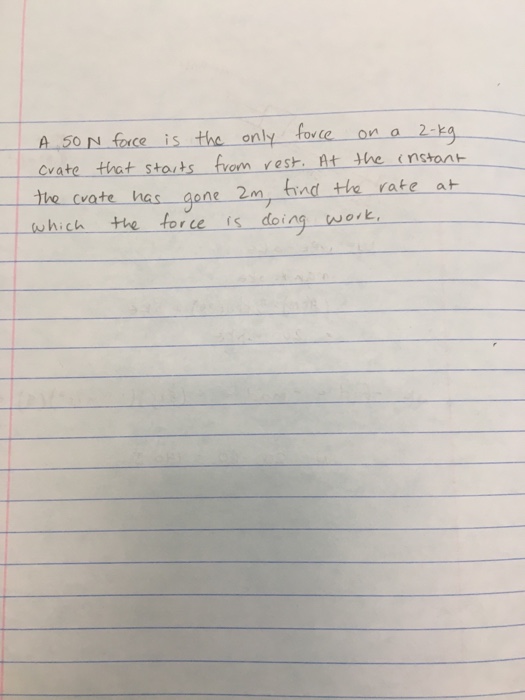 A 50 N force is the only force on a 2-kg
crate that starts from rest. At the instant
the crate has gone 2m, find the rate at
which the force is doing work.